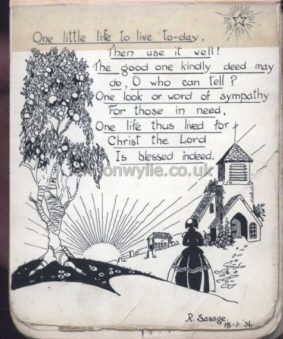 One little life to live to-day,
Then use it well!
The good one kindly deed may
do, O who can tell?
One look or word of sympathy
For those in need,
One life thus lived for
Christ the Lord
Is blessed indeed.
onwylie.co.uk
R. Savage.
18-1-'36